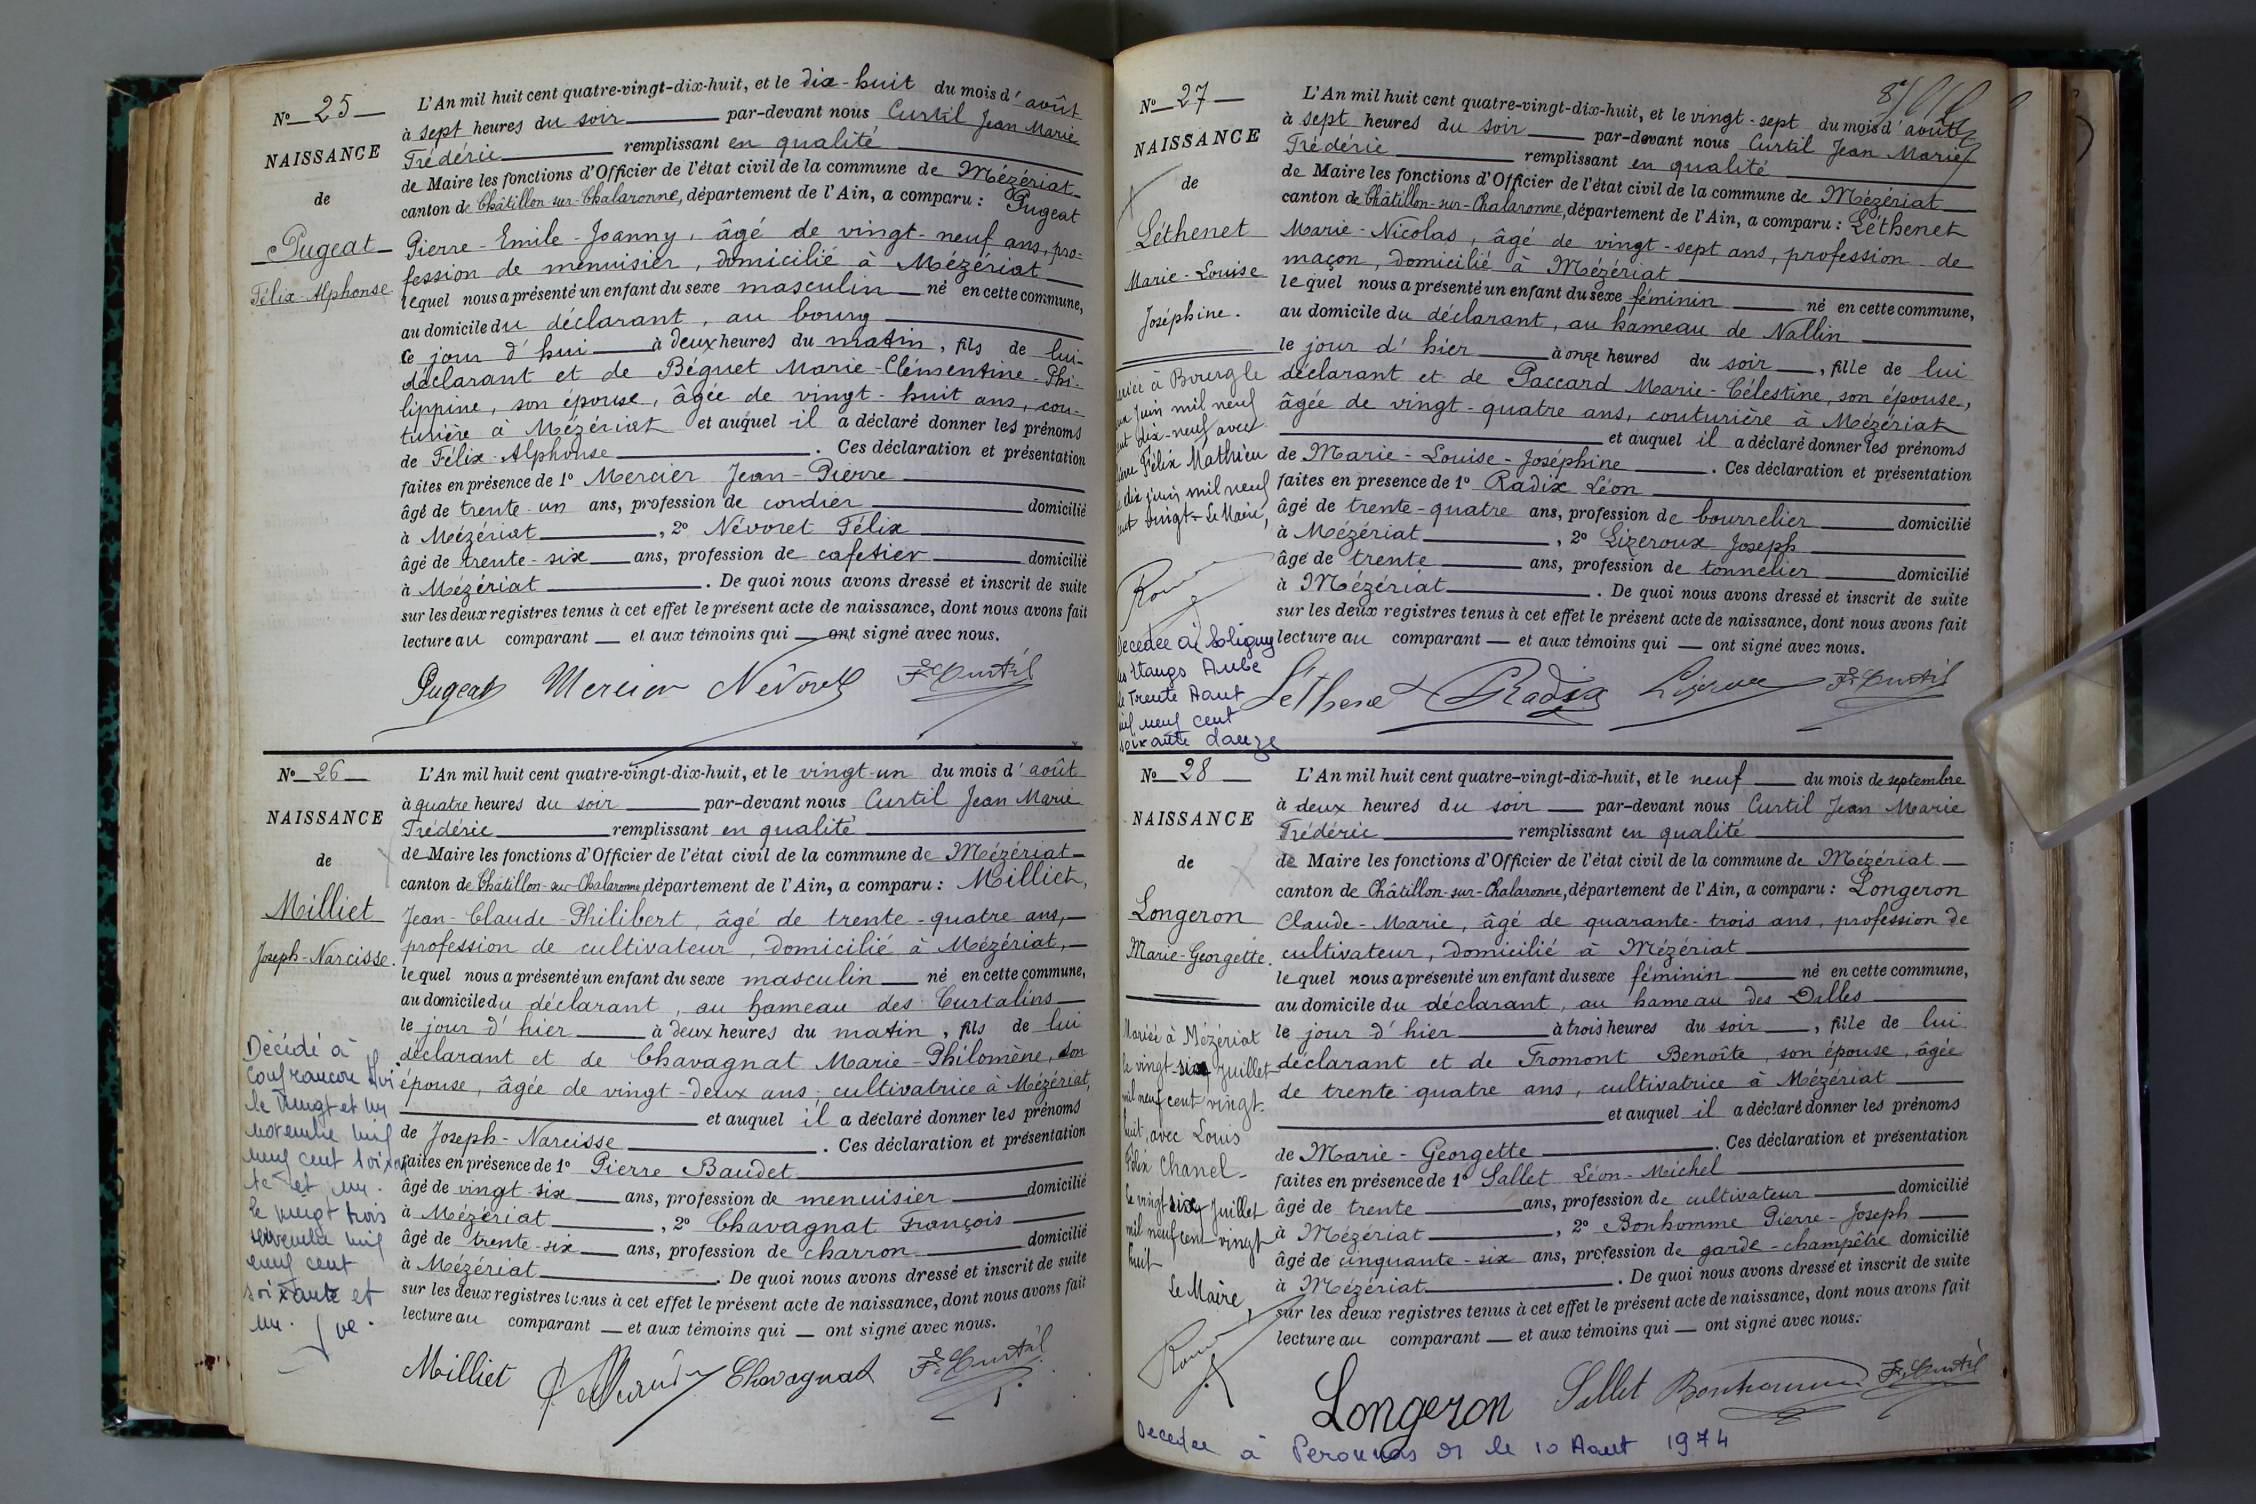 Nº 25
NAISSANCE
de
Pugeat
Félix-Alphonse
L'An mil huit cent quatre-vingt-dix-huit, et le dix-huit du mois d'août
à sept heures du soir par-devant nous Curtil Jean Marie
Frédéric remplissant en qualité
de Maire les fonctions d'Officier de l'état civil de la commune de Mézériat
canton de Châtillon-sur-Chalaronne, département de l'Ain, a comparu : Pugeat
Pierre-Emile-Joanny, âgé de vingt-neuf ans, pro-
fession de menuisier, domicilié à Mézériat
lequel nous a présenté un enfant du sexe masculin né en cette commune,
au domicile du déclarant, au bourg
ce jour d'hui à deux heures du matin, fils de lui
déclarant et de Béguet Marie-Clémentine-Phi-
lippine, son épouse, âgée de vingt-huit ans, cou-
turière à Mézériat et auquel il a déclaré donner les prénoms
de Félix-Alphonse. Ces déclaration et présentation
faites en présence de 1º Mercier Jean-Pierre
âgé de trente-un ans, profession de cordier domicilié
à Mézériat, 2º Névoret Félix
âgé de trente-six ans, profession de cafetier domicilié
à Mézériat. De quoi nous avons dressé et inscrit de suite
sur les deux registres tenus à cet effet le présent acte de naissance, dont nous avons fait
lecture au comparant et aux témoins qui ont signé avec nous.
Pugeat Mercier Névoret F. Curtil
Nº 26
NAISSANCE
de
Milliet
Joseph-Narcisse.
Décédé à
Confrançon Ain
le vingt et un
novembre mil
neuf cent soixan
te et un.
Le vingt trois
novembre mil
neuf cent
soixante et
un.
L'An mil huit cent quatre-vingt-dix-huit, et le vingt-un du mois d'août
à quatre heures du soir par-devant nous Curtil Jean Marie
Frédéric remplissant en qualité
de Maire les fonctions d'Officier de l'état civil de la commune de Mézériat
canton de Châtillon-sur-Chalaronne, département de l'Ain, a comparu : Milliet,
Jean-Claude-Philibert, âgé de trente-quatre ans,
profession de cultivateur, domicilié à Mézériat,
lequel nous a présenté un enfant du sexe masculin né en cette commune,
au domicile du déclarant, au hameau des Curtalins
le jour d'hier à deux heures du matin, fils de lui
déclarant et de Chavagnat Marie-Philomène, son
épouse, âgée de vingt-deux ans, cultivatrice à Mézériat,
et auquel il a déclaré donner les prénoms
de Joseph-Narcisse. Ces déclaration et présentation
faites en présence de 1º Pierre Baudet
âgé de vingt-six ans, profession de menuisier domicilié
à Mézériat, 2º Chavagnat François
âgé de trente-six ans, profession de charron domicilié
à Mézériat. De quoi nous avons dressé et inscrit de suite
sur les deux registres tenus à cet effet le présent acte de naissance, dont nous avons fait
lecture au comparant et aux témoins qui ont signé avec nous.
Milliet Chavagnat F. Curtil
Nº 27
NAISSANCE
de
Léthenet
Marie-Louise
Joséphine.
à Bourg le
juin mil neuf
dix-neuf avec
Félix Mathieu
dix juin mil neuf
cent vingt. Le Maire,
Décédée à Soligny
les Etangs Aube
le trente Aout
mil neuf cent
soixante douze
L'An mil huit cent quatre-vingt-dix-huit, et le vingt-sept du mois d'août
à sept heures du soir par-devant nous Curtil Jean Marie
Frédéric remplissant en qualité
de Maire les fonctions d'Officier de l'état civil de la commune de Mézériat
canton de Châtillon-sur-Chalaronne, département de l'Ain, a comparu : Léthenet
Marie-Nicolas, âgé de vingt-sept ans, profession de
maçon, domicilié à Mézériat
lequel nous a présenté un enfant du sexe féminin né en cette commune,
au domicile du déclarant, au hameau de Nallin
le jour d'hier à onze heures du soir, fille de lui
déclarant et de Paccard Marie-Célestine, son épouse,
âgée de vingt-quatre ans, couturière à Mézériat
et auquel il a déclaré donner les prénoms
de Marie-Louise-Joséphine. Ces déclaration et présentation
faites en présence de 1º Radix Léon
âgé de trente-quatre ans, profession de bourrelier domicilié
à Mézériat, 2º Lizeroux Joseph
âgé de trente ans, profession de tonnelier domicilié
à Mézériat. De quoi nous avons dressé et inscrit de suite
sur les deux registres tenus à cet effet le présent acte de naissance, dont nous avons fait
lecture au comparant et aux témoins qui ont signé avec nous.
Léthenet Radix Lizeroux F. Curtil
Nº 28
NAISSANCE
de
Longeron
Marie-Georgette.
Mariée à Mézériat
le vingt-six Juillet
mil neuf cent vingt-
huit, avec Louis
Félix Chanel.
Le vingt six Juillet
mil neuf cent vingt
huit
Le Maire,
L'An mil huit cent quatre-vingt-dix-huit, et le neuf du mois de septembre
à deux heures du soir par-devant nous Curtil Jean Marie
Frédéric remplissant en qualité
de Maire les fonctions d'Officier de l'état civil de la commune de Mézériat
canton de Châtillon-sur-Chalaronne, département de l'Ain, a comparu : Longeron
Claude-Marie, âgé de quarante-trois ans, profession de
cultivateur, domicilié à Mézériat
lequel nous a présenté un enfant du sexe féminin né en cette commune,
au domicile du déclarant, au hameau des Dalles
le jour d'hier à trois heures du soir, fille de lui
déclarant et de Fromont Benoîte, son épouse, âgée
de trente quatre ans, cultivatrice à Mézériat
et auquel il a déclaré donner les prénoms
de Marie-Georgette. Ces déclaration et présentation
faites en présence de 1º Sallet Léon-Michel
âgé de trente ans, profession de cultivateur domicilié
à Mézériat, 2º Bonhomme Pierre-Joseph
âgé de cinquante-six ans, profession de garde-champêtre domicilié
à Mézériat. De quoi nous avons dressé et inscrit de suite
sur les deux registres tenus à cet effet le présent acte de naissance, dont nous avons fait
lecture au comparant et aux témoins qui ont signé avec nous.
Longeron Sallet Bonhomme F. Curtil
Décédée à Peronnas 01 le 10 Aout 1974